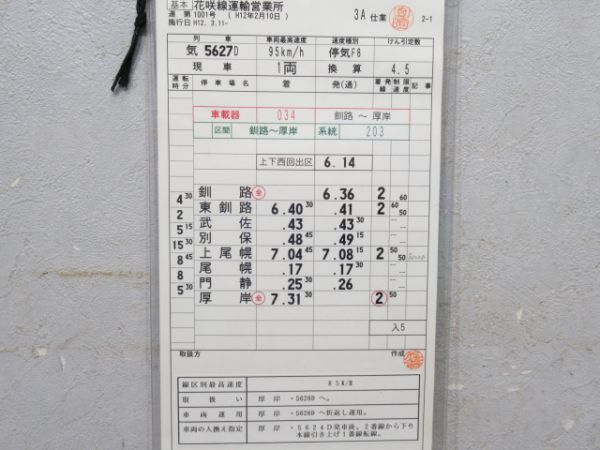 基本 花咲線運輸営業所
運 第 1001号 ( H12年2月10日 ) 3A 仕業 2-1
施行日 H12. 3.11-
列車 車両最高速度 速度種別 けん引定数
気 5627D 95km/h 停気F8
現車 1両 換算 4.5
運転時分 停車場名 着 発(通) 着発線 制限速度 記事
車載器 034 釧路 ～ 厚岸
区間 釧路～厚岸 系統 203
上下西回出区 6.14
釧路 全 6.36 2 60
4 30
東釧路 6.40 30 .41 2 60 50
2
武佐 .43 .43 30
5 15
別保 .48 45 .49 15
15 30
上尾幌 7.04 45 7.08 15 2 50
8
尾幌 .17 .17 30
8
門静 .25 30 .26
5 30
厚岸 全 7.31 30 2 50
入5
取扱方 作成
線区別最高速度 85K/H
取扱い 厚岸 ・5626D へ。
車両運用 厚岸 ・5626D へ折返し運用。
車両の入換え指定 厚岸 ・5624D発車後、2番線から下り
本線引き上げ1番線転線。